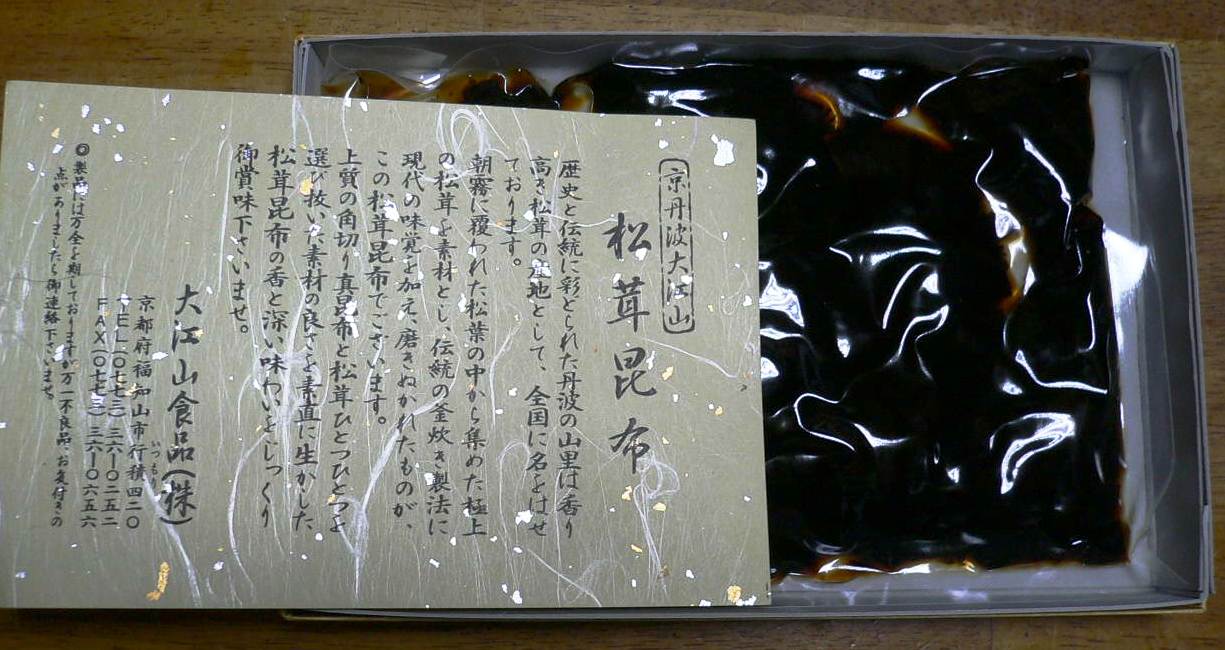 京丹波大江山
松茸昆布
歴史と伝統に彩どられた丹波の山里は香り
高き松茸の産地として、全国に名をはせ
ております。
朝霧に覆われた松葉の中から集めた極上
の松茸を素材とし、伝統の釜炊き製法に
現代の味覚を加え、磨きぬかれたものが、
この松茸昆布でございます。
上質の角切り真昆布と松茸ひとつひとつよ
選び抜いた素材の良さを素直に生かした
松茸昆布の香と深い味わいをじっくり
御賞味下さいませ。
大江山食品(株)
京都府福知山市行積四二〇
いつもり
TEL(〇七七三)三六ー〇二五二
FAX(〇七七三)三六ー〇六五六
◎製品には万全を期しておりますが万一不良品、お気付きの
点がありましたら御連絡下さいませ。